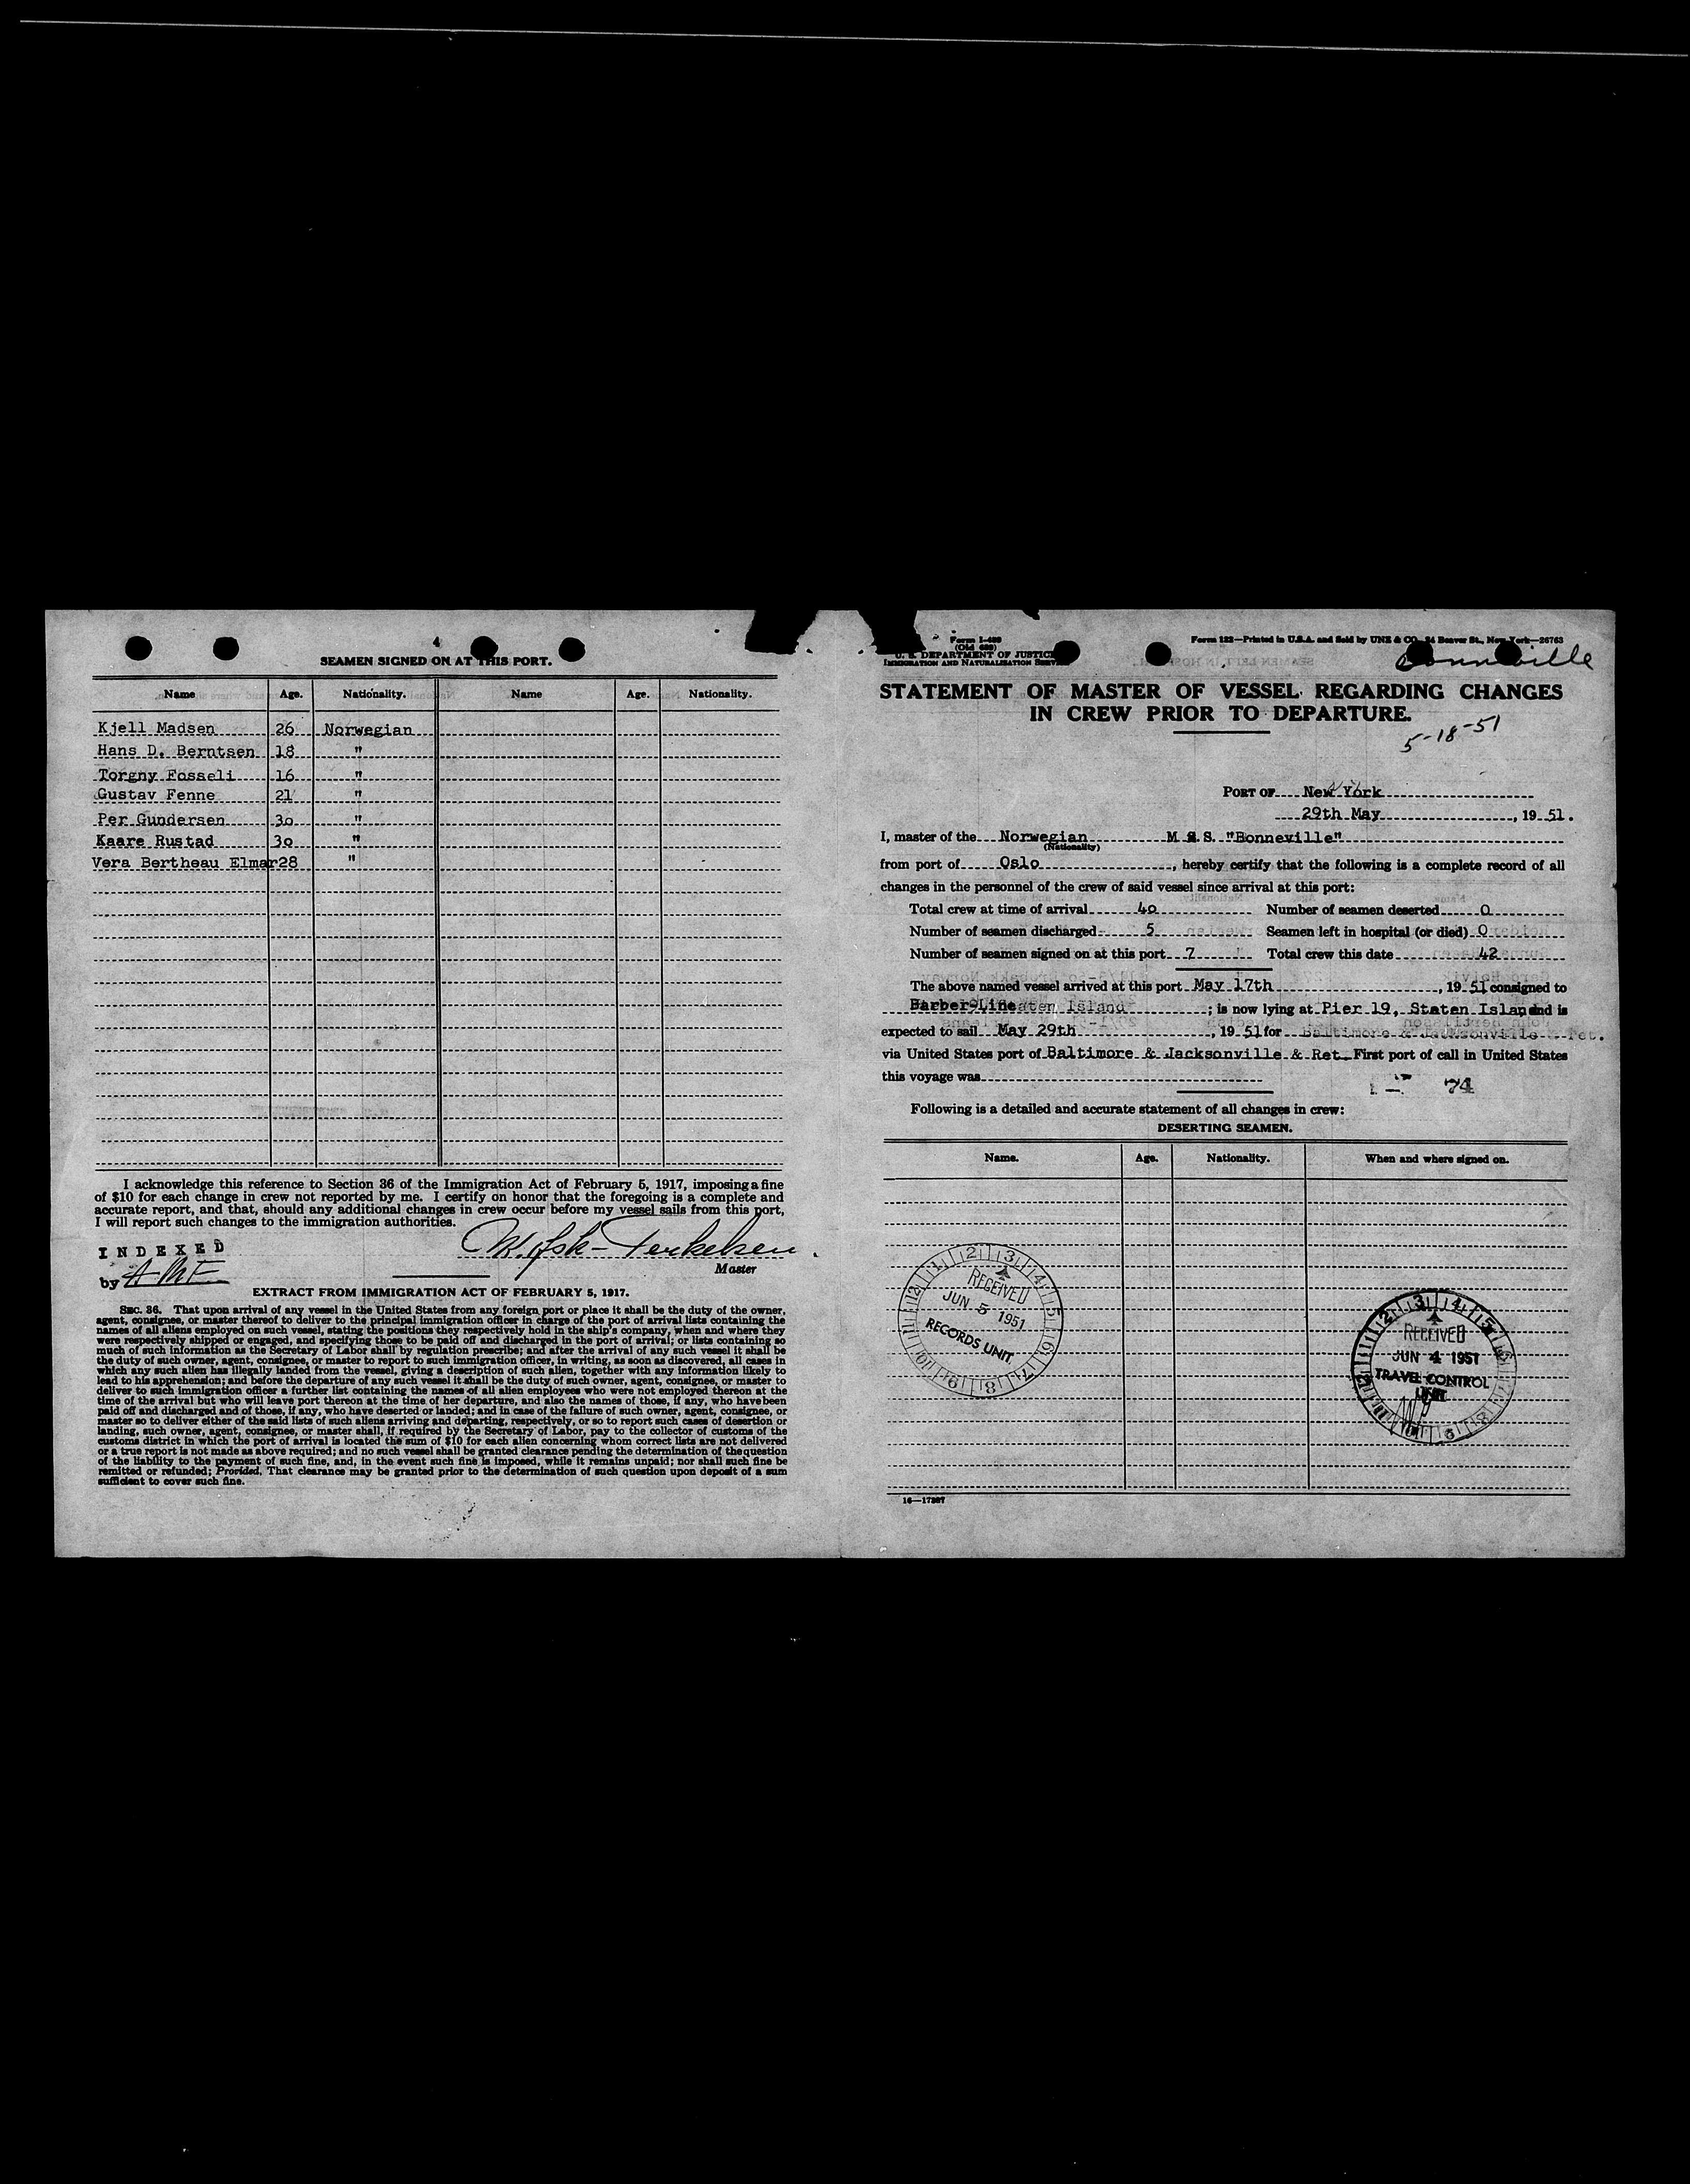 4
SEAMEN SIGNED ON AT THIS PORT.
Name Age. Nationality. Name Age. Nationality.
Kjell Madsen 26 Norwegian
Hans D. Berntsen 18 "
Torgny Fosseli 16 "
Gustav Fenne 21 "
Per Gundersen 30 "
Kaare Rustad 30 "
Vera Bertheau Elmar 28 "
I acknowledge this reference to Section 36 of the Immigration Act of February 5, 1917, imposing a fine
of $10 for each change in crew not reported by me. I certify on honor that the foregoing is a complete and
accurate report, and that, should any additional changes in crew occur before my vessel sails from this port,
I will report such changes to the immigration authorities.
INDEXED
by
Master
EXTRACT FROM IMMIGRATION ACT OF FEBRUARY 5, 1917.
SEC. 36. That upon arrival of any vessel in the United States from any foreign port or place it shall be the duty of the owner,
agent, consignee, or master thereof to deliver to the principal immigration officer in charge of the port of arrival lists containing the
names of all aliens employed on such vessel, stating the positions they respectively hold in the ship's company, when and where they
were respectively shipped or engaged, and specifying those to be paid off and discharged in the port of arrival; or lists containing so
much of such information as the Secretary of Labor shall by regulation prescribe; and after the arrival of any such vessel it shall be
the duty of such owner, agent, consignee, or master to report to such immigration officer, in writing, as soon as discovered, all cases in
which any such alien has illegally landed from the vessel, giving a description of such alien, together with any information likely to
lead to his apprehension; and before the departure of any such vessel it shall be the duty of such owner, agent, consignee, or master to
deliver to such immigration officer a further list containing the names of all alien employees who were not employed thereon at the
time of the arrival but who will leave port thereon at the time of her departure, and also the names of those, if any, who have been
paid off and discharged and of those, if any, who have deserted or landed; and in case of the failure of such owner, agent, consignee, or
master so to deliver either of the said lists of such aliens arriving and departing, respectively, or so to report such cases of desertion or
landing, such owner, agent, consignee, or master shall, if required by the Secretary of Labor, pay to the collector of customs of the
customs district in which the port of arrival is located the sum of $10 for each alien concerning whom correct lists are not delivered
or a true report is not made as above required; and no such vessel shall be granted clearance pending the determination of the question
of the liability to the payment of such fine, and, in the event such fine is imposed, while it remains unpaid; nor shall such fine be
remitted or refunded; Provided, That clearance may be granted prior to the determination of such question upon deposit of a sum
sufficient to cover such fine.
Form I-489
(Old 689)
U. S. DEPARTMENT OF JUSTICE
IMMIGRATION AND NATURALIZATION SERVICE
Form 122—Printed in U.S.A. and Sold by UNZ & CO., 24 Beaver St., New York—26763
Bonneville
STATEMENT OF MASTER OF VESSEL REGARDING CHANGES
IN CREW PRIOR TO DEPARTURE.
5-18-51
PORT OF New York
29th May, 1951.
I, master of the Norwegian M.S. "Bonneville"
(Nationality)
from port of Oslo, hereby certify that the following is a complete record of all
changes in the personnel of the crew of said vessel since arrival at this port:
Total crew at time of arrival 40 Number of seamen deserted 0
Number of seamen discharged 5 Seamen left in hospital (or died) 0
Number of seamen signed on at this port 7 Total crew this date 42
The above named vessel arrived at this port May 17th, 1951 consigned to
Barber-Line; is now lying at Pier 19, Staten Island and is
expected to sail May 29th, 1951 for Baltimore & Jacksonville & Ret.
via United States port of Baltimore & Jacksonville & Ret. First port of call in United States
this voyage was
74
Following is a detailed and accurate statement of all changes in crew:
DESERTING SEAMEN.
Name. Age. Nationality. When and where signed on.
RECEIVED
JUN 5 1951
RECORDS UNIT
RECEIVED
JUN 4 1951
TRAVEL CONTROL
UNIT
16—17387